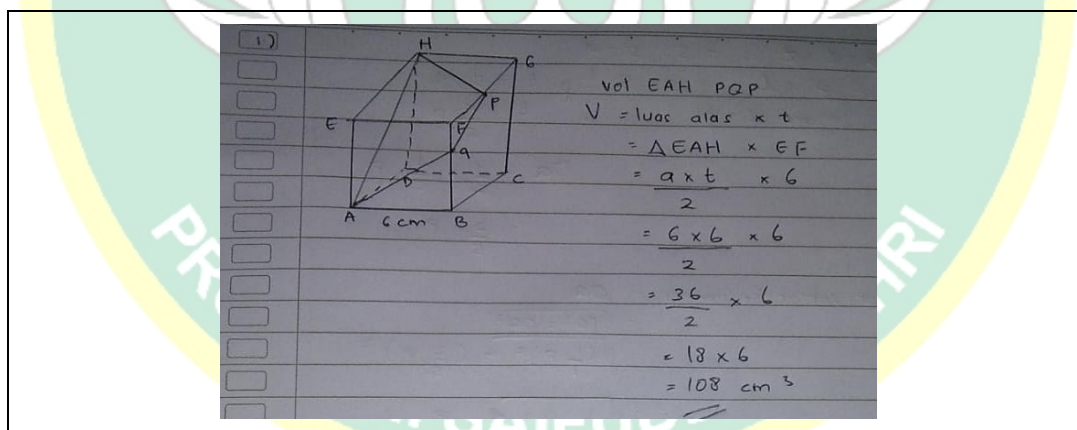 1)
H
G
P
E
F
Q
D
C
A
6 cm
B
vol EAH PQP
V = luas alas x t
= ΔEAH x EF
= a x t x 6
2
= 6 x 6 x 6
2
= 36 x 6
2
= 18 x 6
= 108 cm³